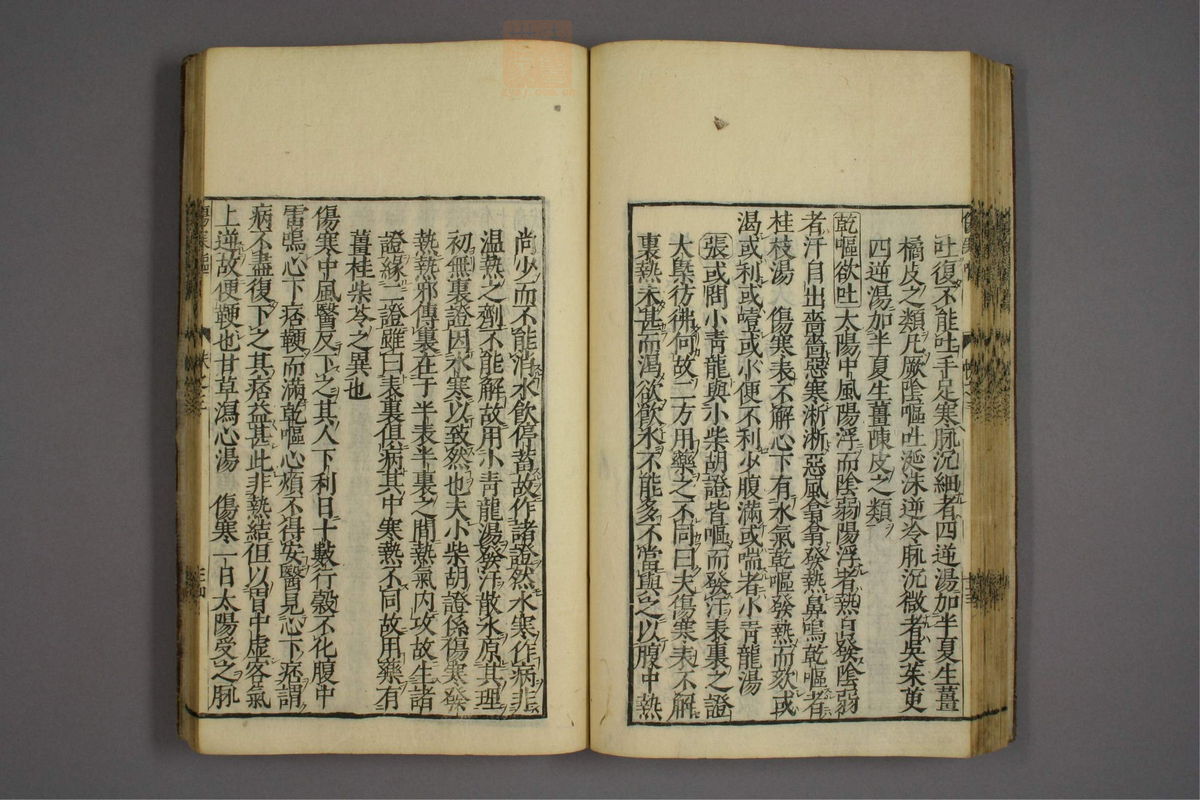 吐復不能吐手足寒脉沉細者四逆湯加半夏生薑
橘皮之類凡厥陰嘔吐涎沫逆冷脉沉微者吳茱萸
四逆湯加半夏生薑陳皮之類
乾嘔欲吐太陽中風陽浮而陰弱陽浮者熱自發陰弱
者汗自出嗇嗇惡寒淅淅惡風翕翕發熱鼻鳴乾嘔者
桂枝湯 傷寒表不解心下有水氣乾嘔發熱而欬或
渴或利或噎或小便不利少腹滿或喘者小青龍湯
張或問小青龍與小柴胡證皆嘔而發汗表裏之證
大槩彷彿何故二方用藥之不同曰夫傷寒表不解
裏熱未甚而渴欲飲水不能多不當與之以腹中熱
尚少而不能消水飲停蓄故作諸證然水寒作病非
温熱之劑不能解故用小青龍湯發汗散水原其理
初無裏證因水寒以致然也夫小柴胡證係傷寒發
熱熱邪傳裏在于半表半裏之間熱氣内攻故生諸
證緣二證雖曰表裏俱病其中寒熱不同故用藥有
薑桂柴芩之異也
傷寒中風醫反下之其人下利日十數行穀不化腹中
雷鳴心下痞鞕而滿乾嘔心煩不得安醫見心下痞謂
病不盡復下之其痞益甚此非熱結但以胃中虛客氣
上逆故使鞕也甘草瀉心湯 傷寒一日太陽受之脉